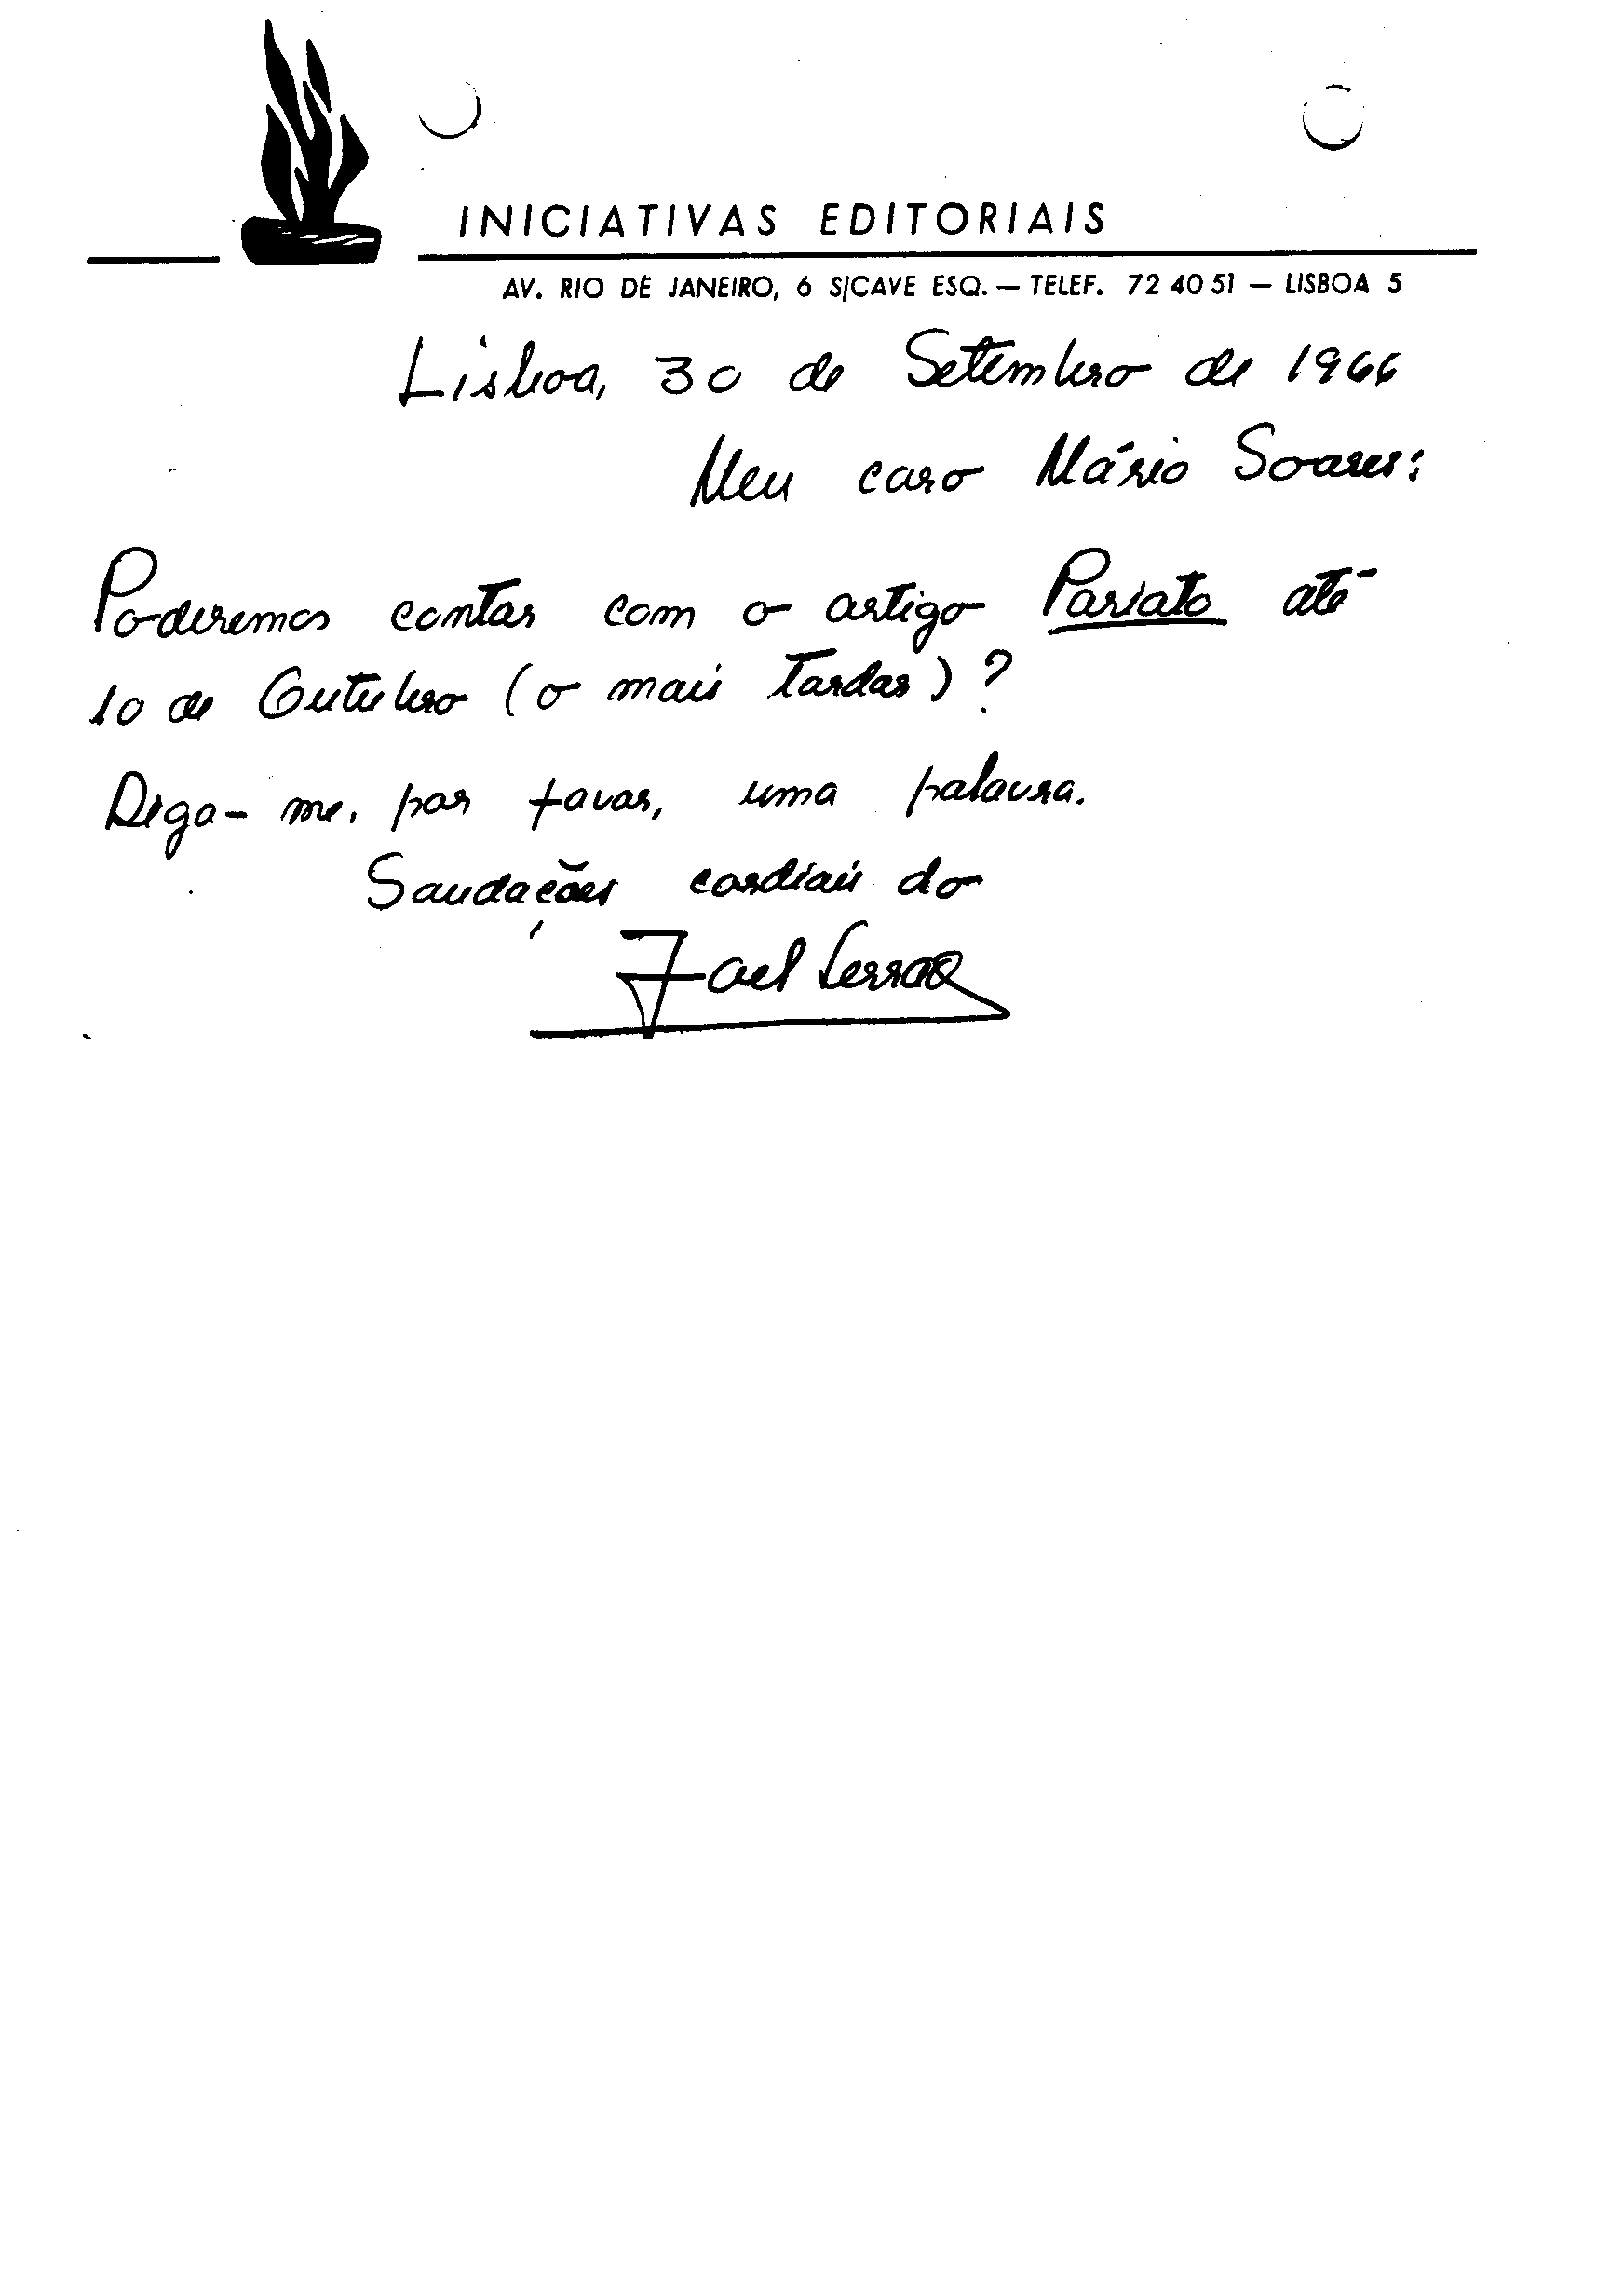 INICIATIVAS EDITORIAIS
AV. RIO DE JANEIRO, 6 S/CAVE ESQ. — TELEF. 72 40 51 — LISBOA 5
Lisboa, 30 de Setembro de 1966
Meu caro Mário Soares:
Poderemos contar com o artigo Pariato até
10 de Outubro (o mais tardar)?
Diga-me, por favor, uma palavra.
Saudações cordiais do
Joel Serrão